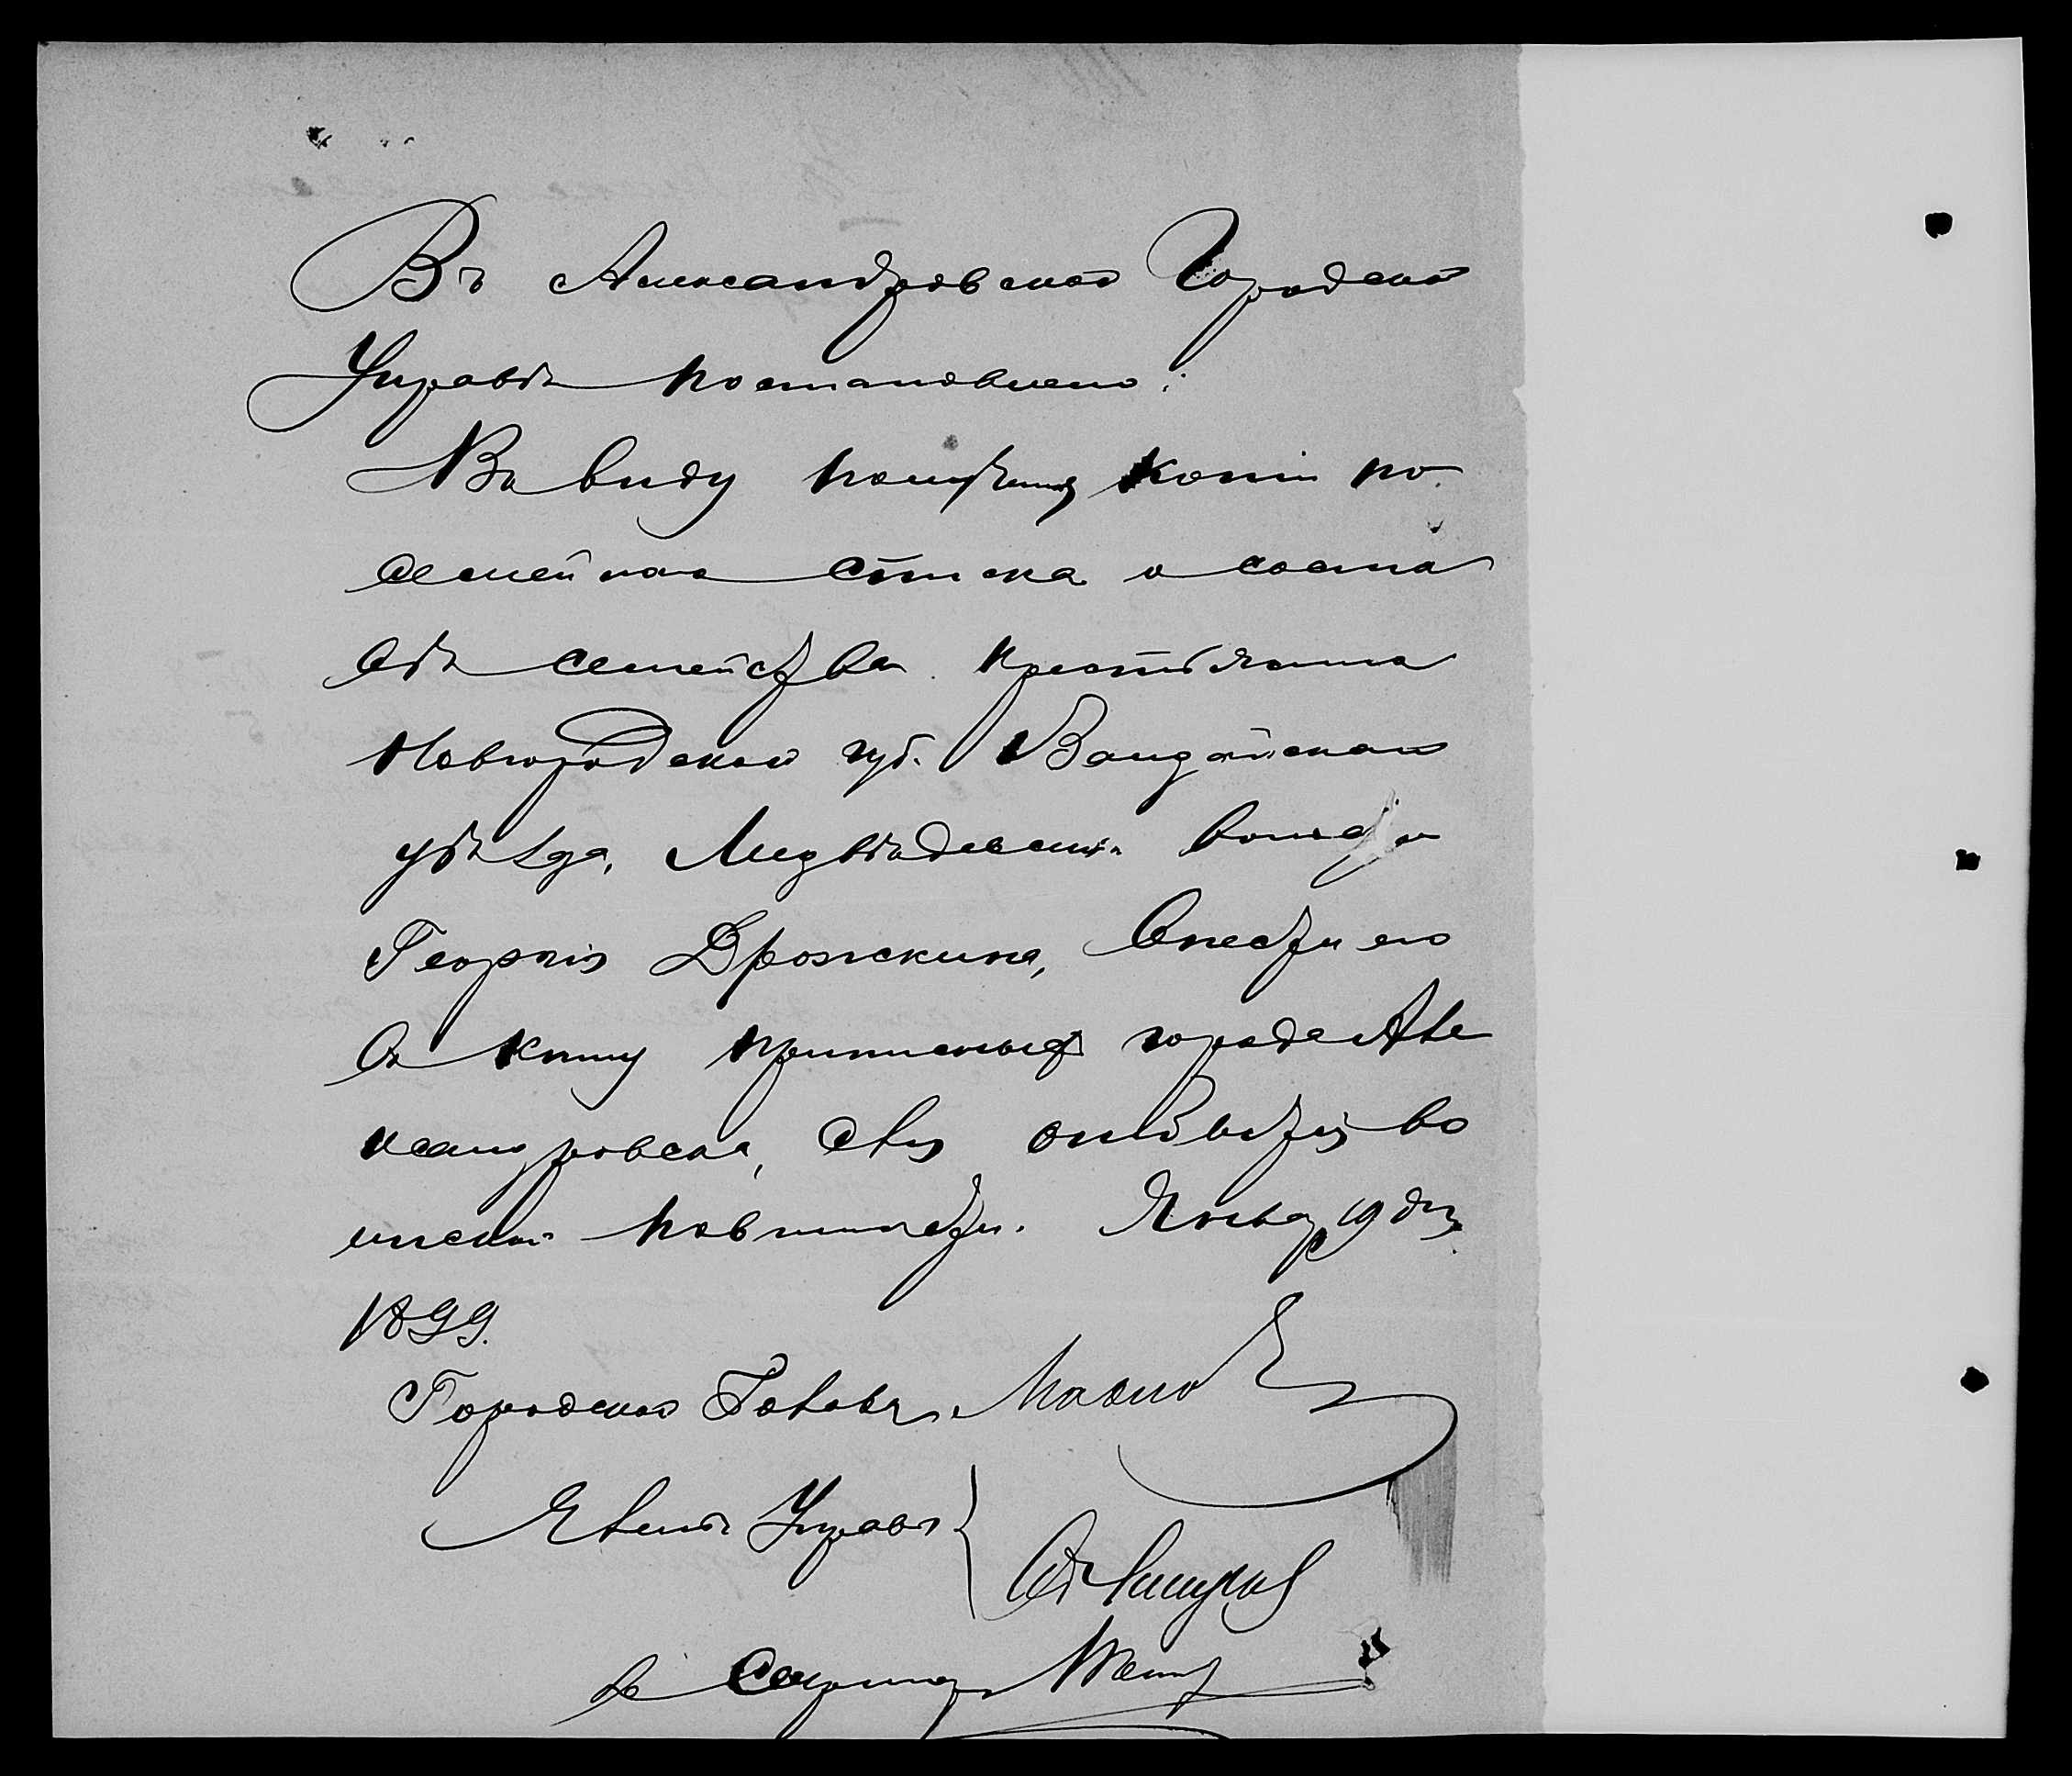 Въ Александровской Городской
Управѣ постановлено:
Въ виду полученія копіи по-
семейнаго списка о соста
вѣ семейства крестьянина
Новгородской губ. Валдайскаго
уѣзда, Медвѣдевской волости
Георгія Дрожскина, внести его
въ книгу приписныхъ города Але
ксандровска, для отбытія во
инской повинности. Января 19 дня
1899.
Городской Голова
Члены Управы
Секретарь